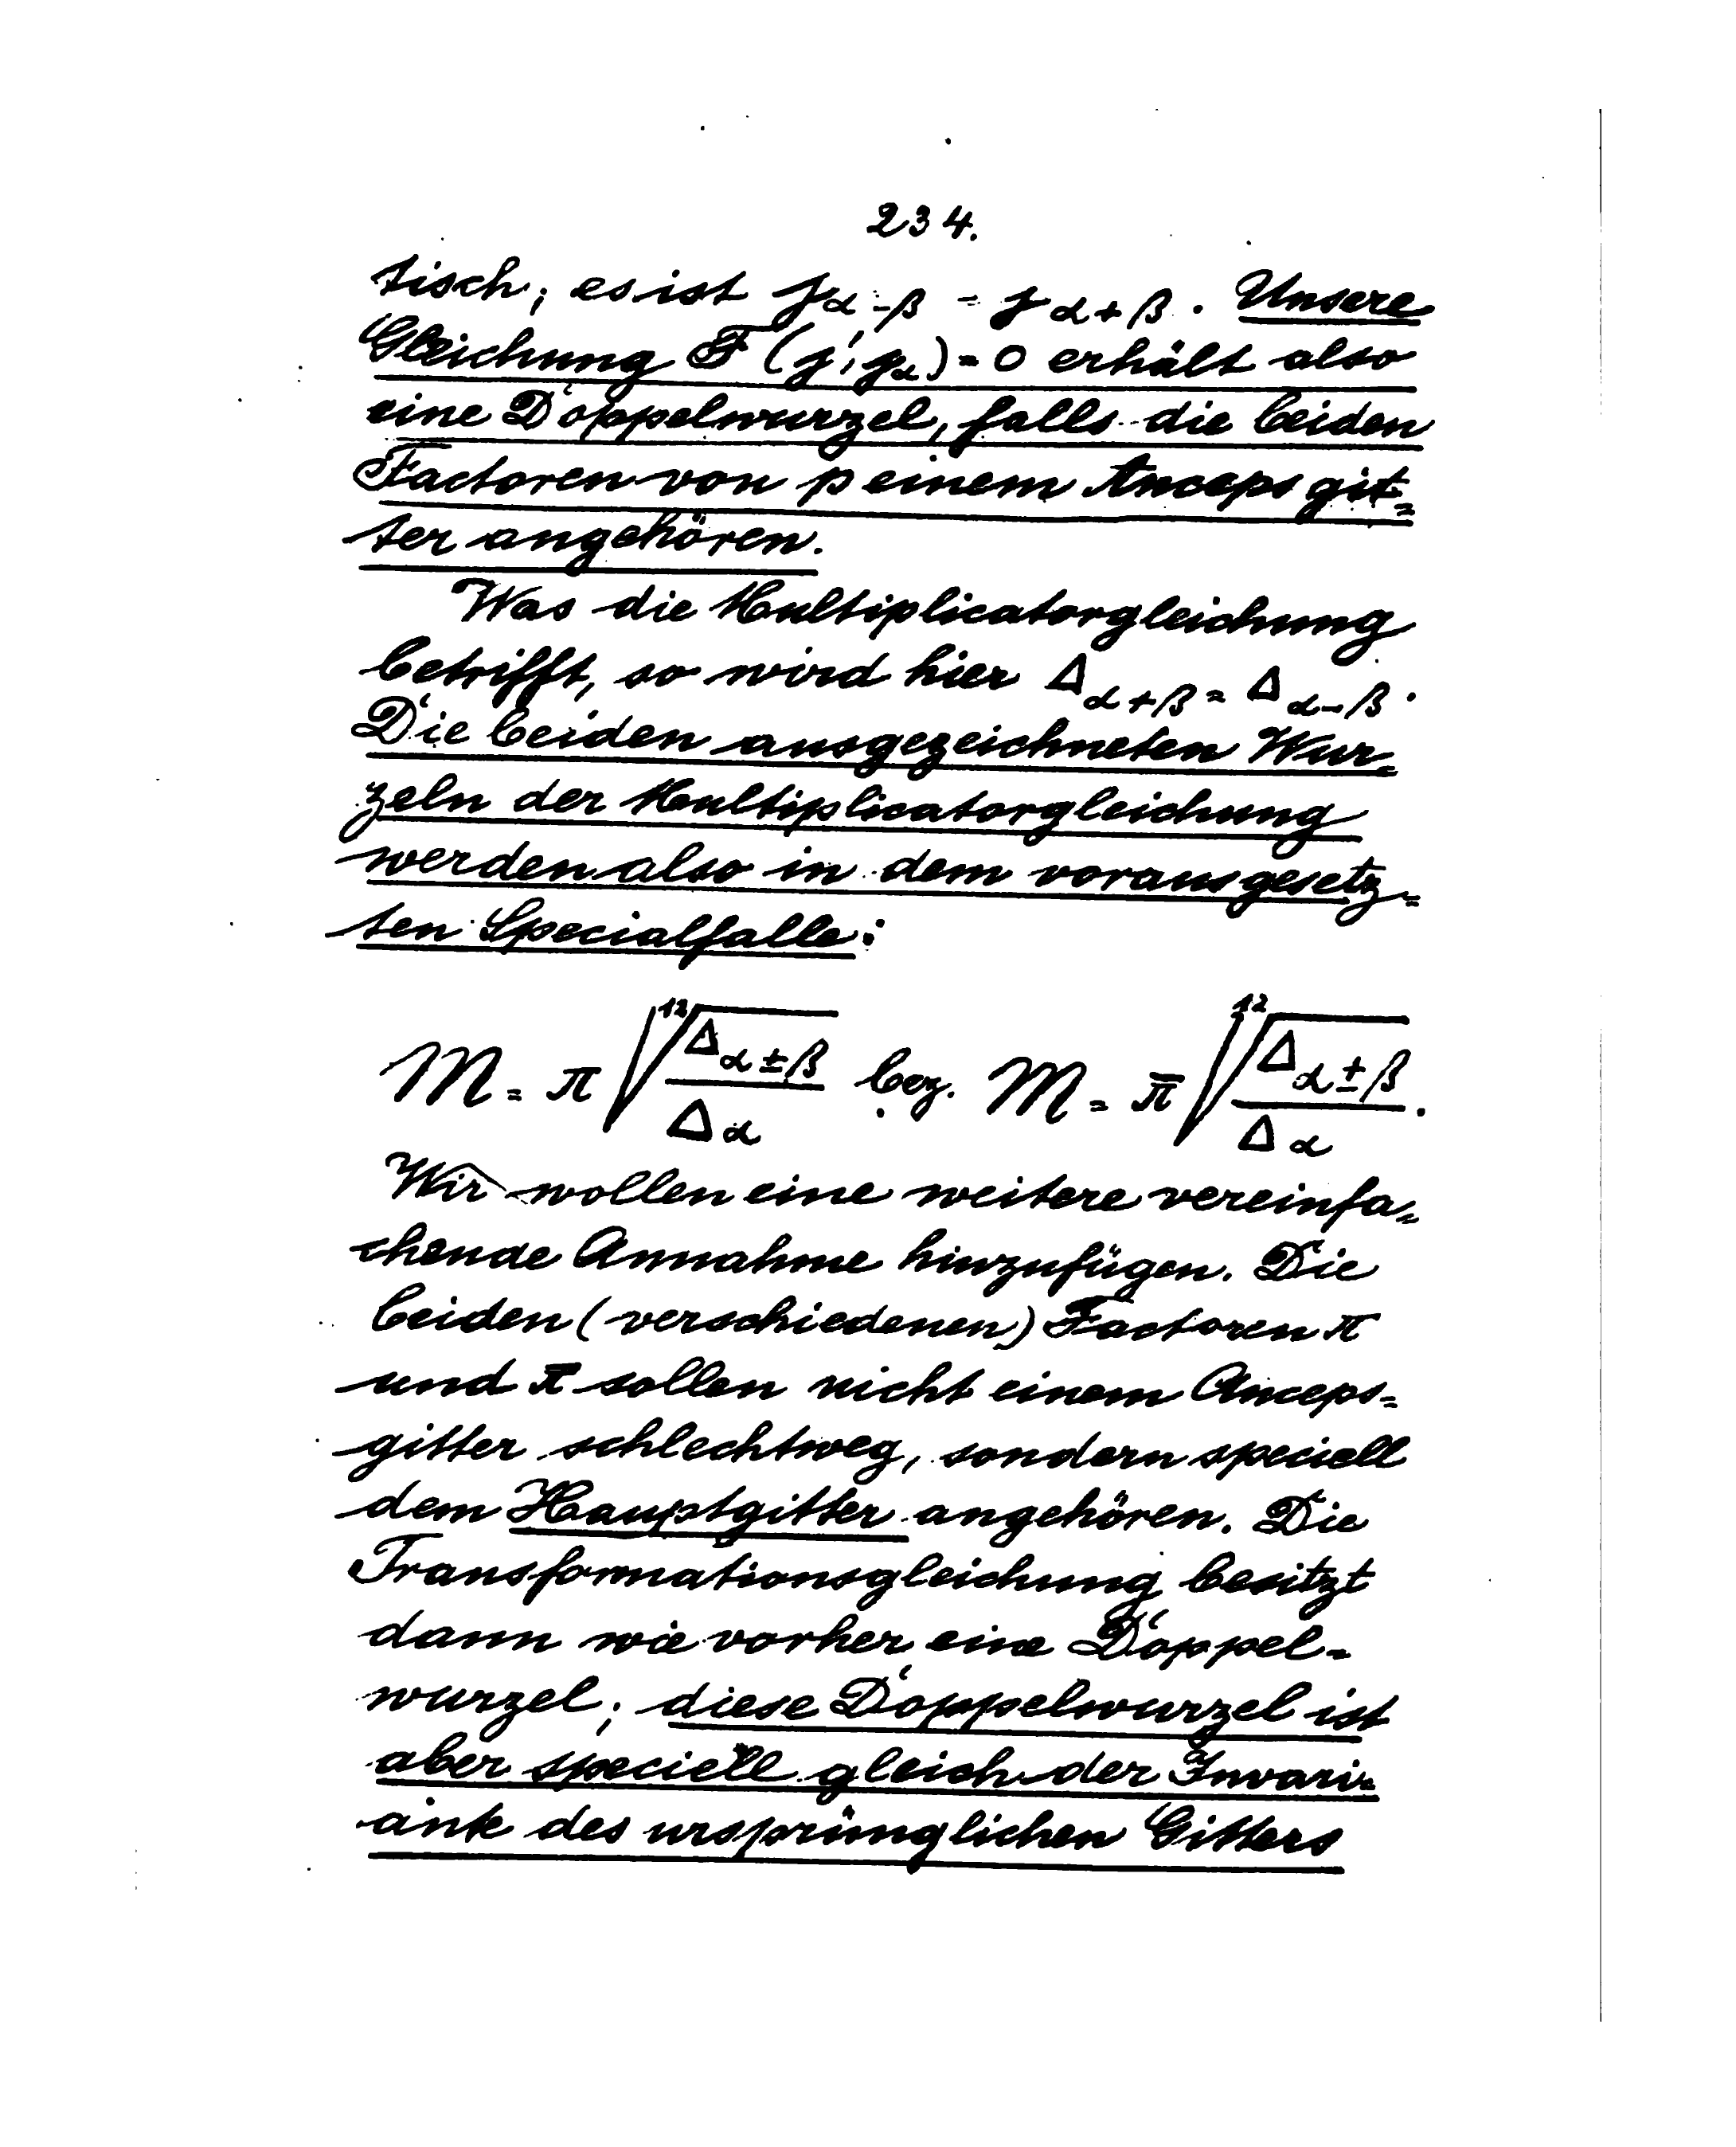 234.
tisch; es ist j α-β = j α+β. Unsere
Gleichung F (j', jα) = 0 erhält also
eine Doppelwurzel, falls die beiden
Factoren von p einem Ancepsgit=
ter angehören.
Was die Multiplicatorgleichung
betrifft, so wird hier Δ α+β = Δ α-β.
Die beiden ausgezeichneten Wur=
zeln der Multiplicatorgleichung
werden also in dem vorausgesetz=
ten Specialfalle:
M = π √¹² Δ α±β / Δ α bez. M = π̄ √¹² Δ α±β / Δ α.
Wir wollen eine weitere vereinfa=
chende Annahme hinzufügen. Die
beiden (verschiedenen) Factoren π
und π̄ sollen nicht einem Anceps=
gitter schlechtweg, sondern speciell
dem Hauptgitter angehören. Die
Transformationsgleichung besitzt
dann wie vorher eine Doppel=
wurzel; diese Doppelwurzel ist
aber speciell gleich der Invari=
ante des ursprünglichen Gitters